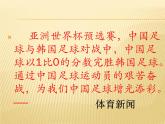 亚洲世界杯预选赛，中国足
球与韩国足球对战中，中国足
球以1比0的分数完胜韩国足球。
通过中国足球运动员的艰苦奋
战，为中国足球增添光彩。
体育新闻